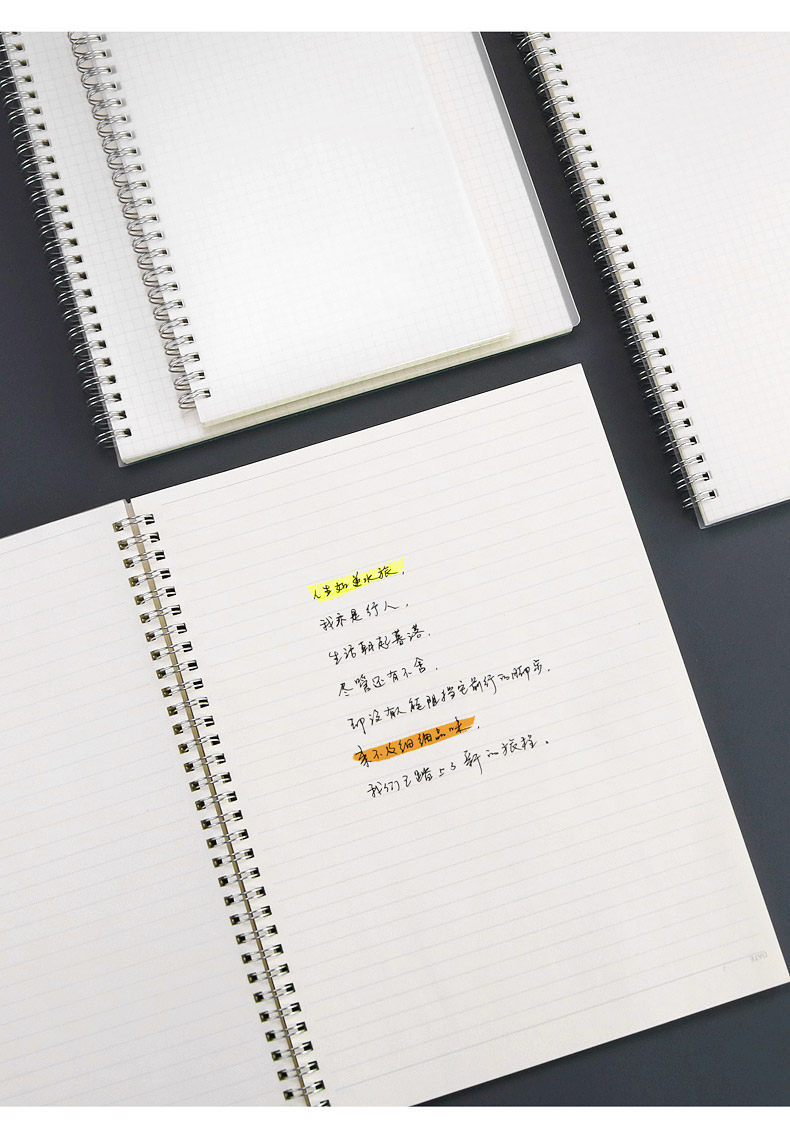 人生如逆水旅，
我亦是行人，
生活朝起暮落，
尽管还有不舍，
却没有人能阻挡它前行的脚步，
来不及细细品味，
我们已踏上了新的旅程。
DATE